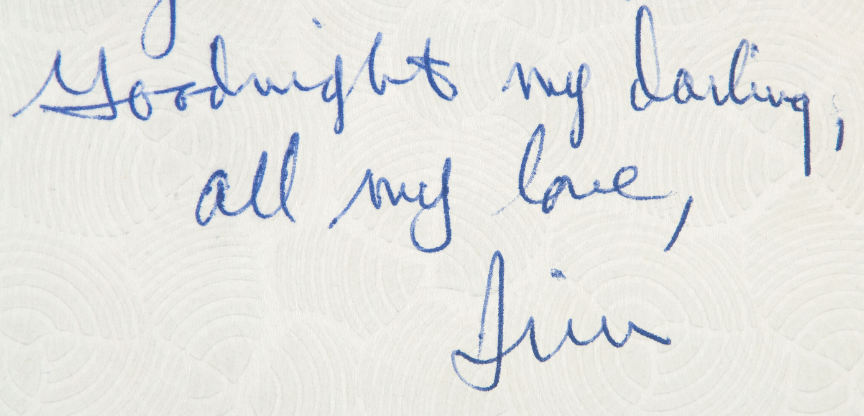 Goodnight my darling,
all my love,
Jim